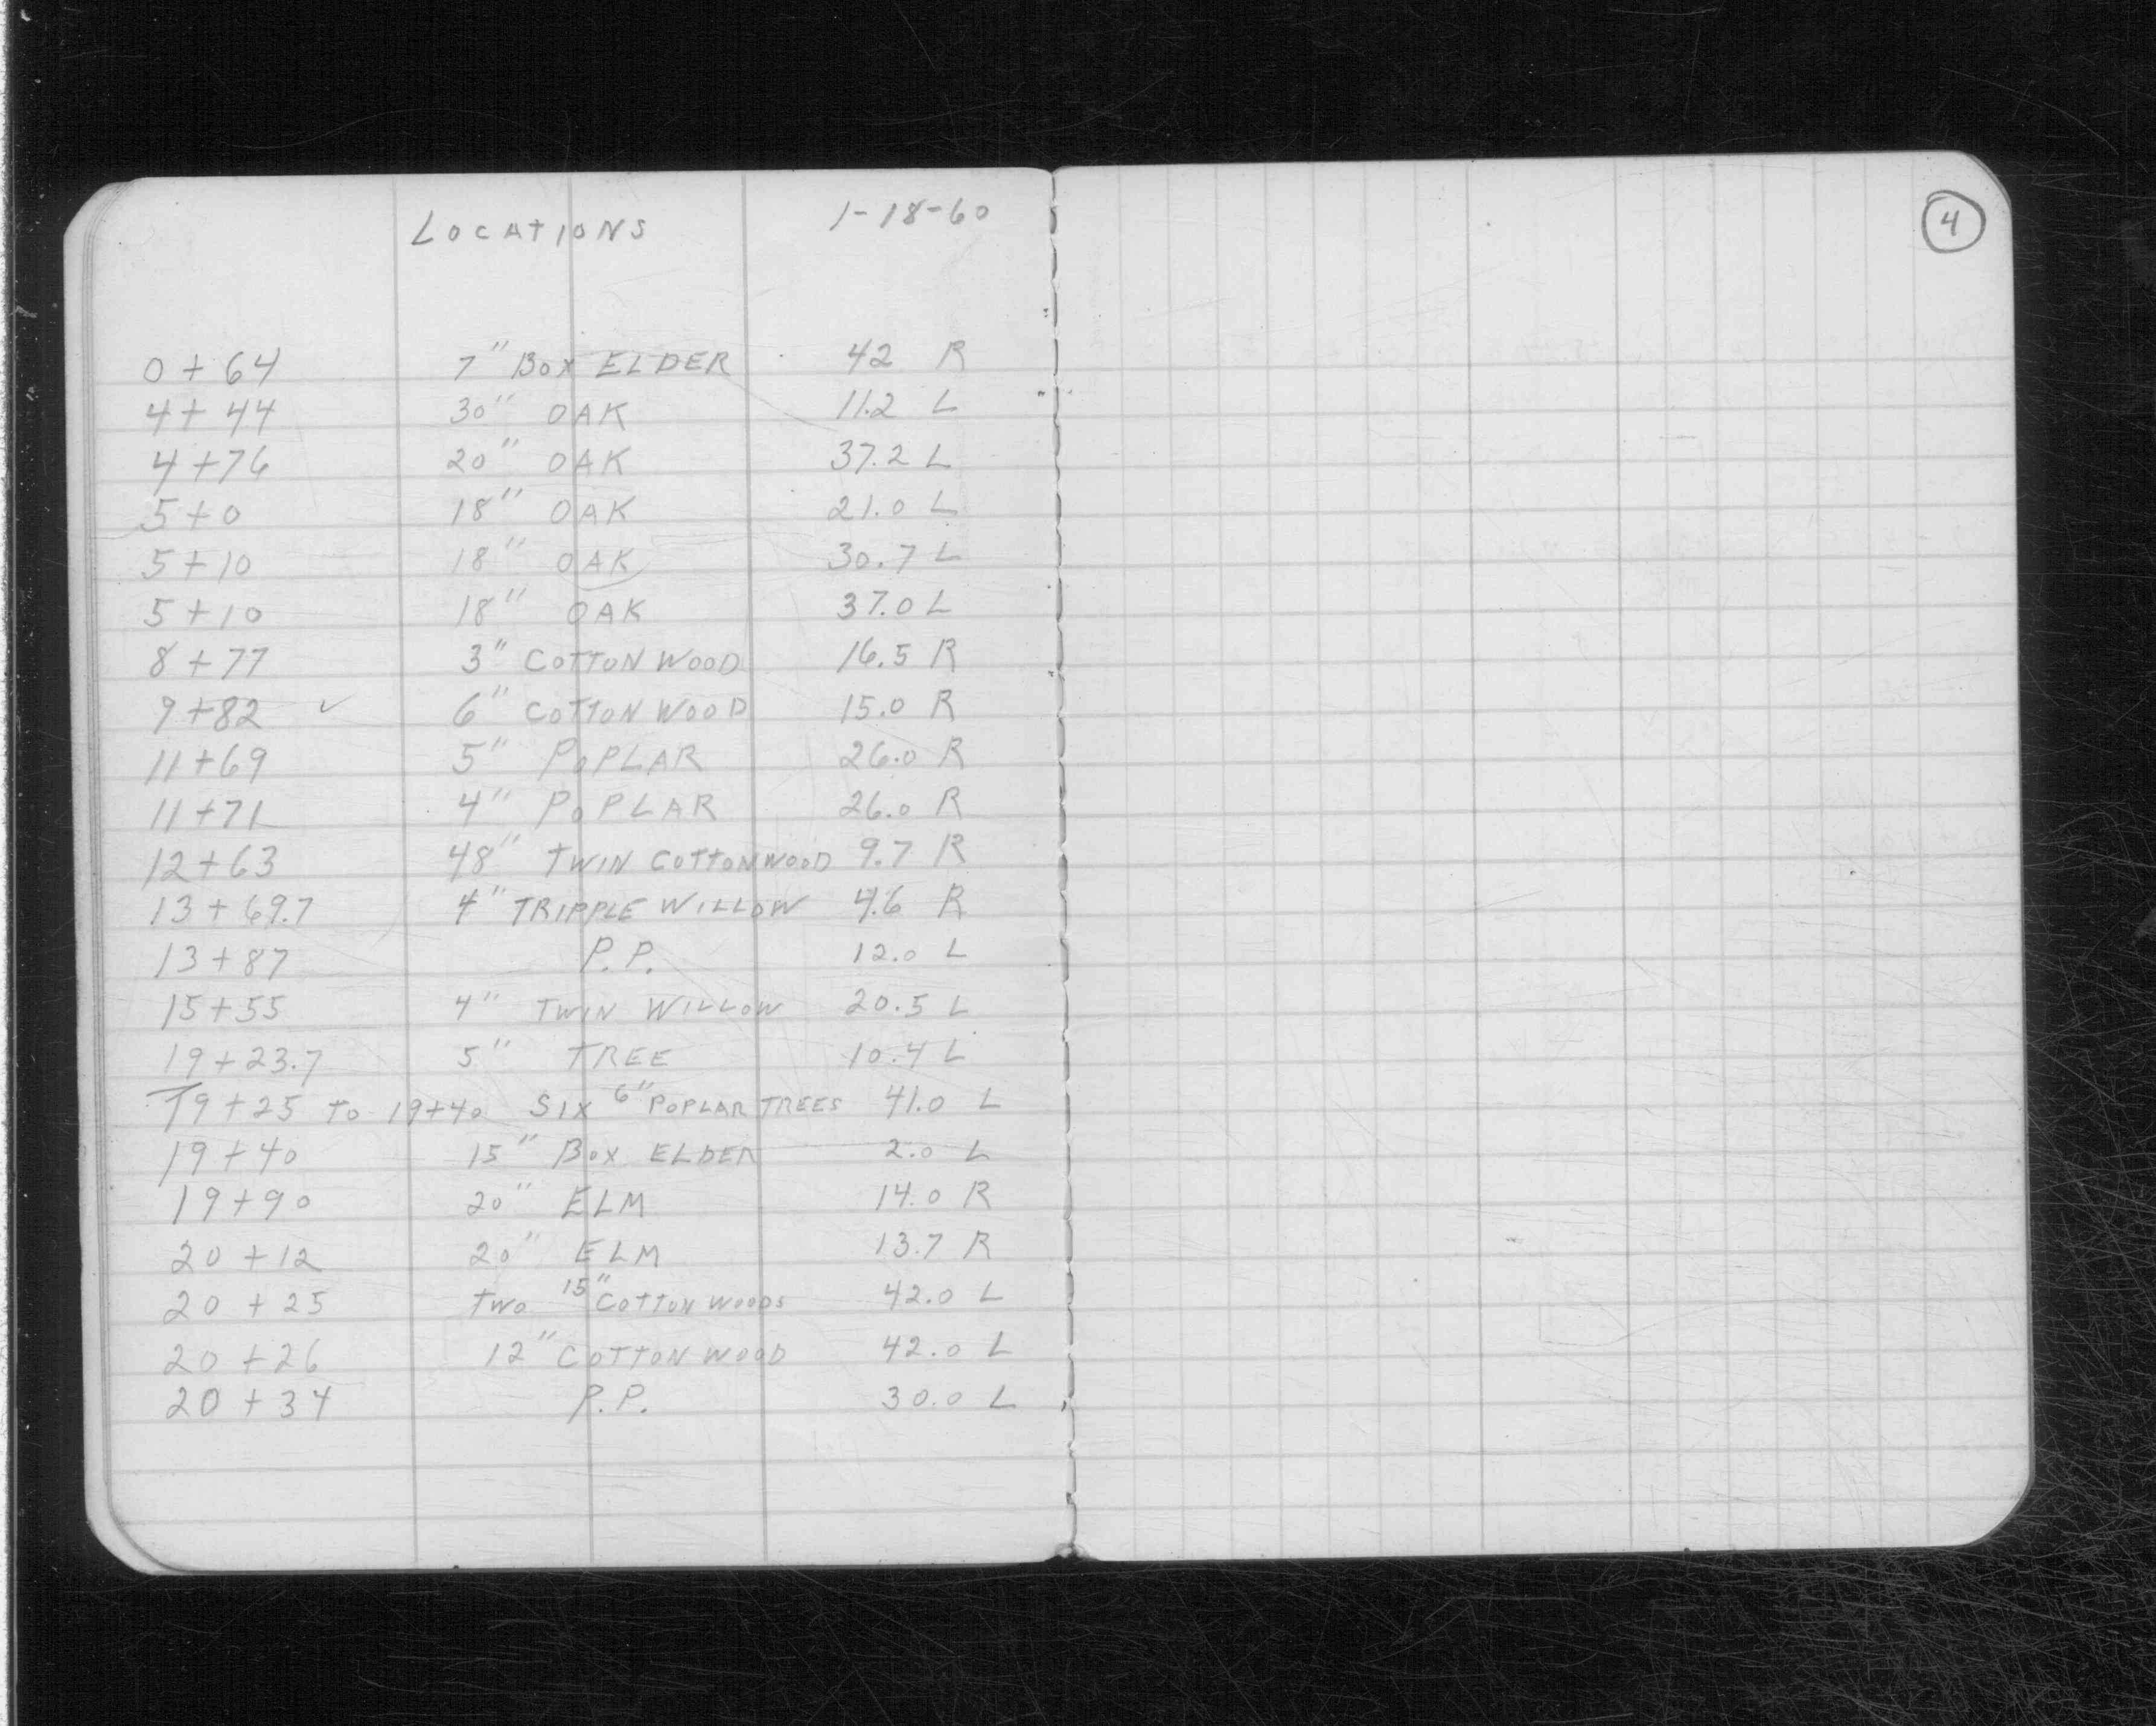 LOCATIONS 1-18-60
4
0+64 7" BOX ELDER 42 R
4+44 30" OAK 11.2 L
4+76 20" OAK 37.2 L
5+0 18" OAK 21.0 L
5+10 18" OAK 30.7 L
5+10 18" OAK 37.0 L
8+77 3" COTTON WOOD 16.5 R
9+82 ✓ 6" COTTON WOOD 15.0 R
11+69 5" POPLAR 26.0 R
11+71 4" POPLAR 26.0 R
12+63 48" TWIN COTTONWOOD 9.7 R
13+69.7 4" TRIPPLE WILLOW 4.6 R
13+87 P.P. 12.0 L
15+55 4" TWIN WILLOW 20.5 L
19+23.7 5" TREE 10.4 L
19+25 TO 19+40 SIX 6" POPLAR TREES 41.0 L
19+40 15" BOX ELDER 2.0 L
19+90 20" ELM 14.0 R
20+12 20" ELM 13.7 R
20+25 TWO 15" COTTON WOODS 42.0 L
20+26 12" COTTON WOOD 42.0 L
20+34 P.P. 30.0 L